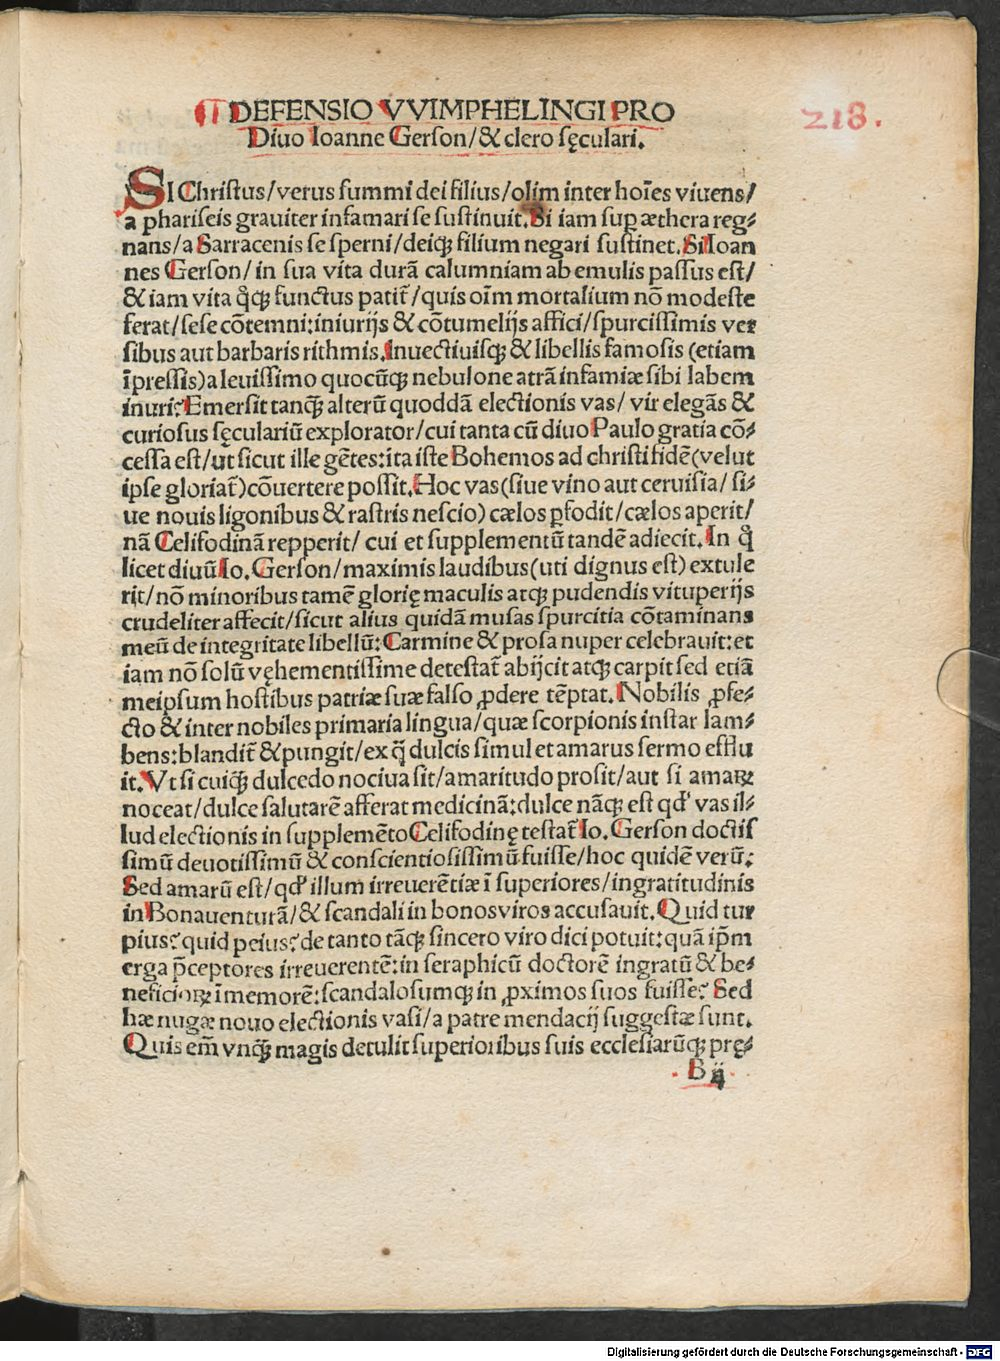 218.
¶ DEFENSIO VVIMPHELINGI PRO
Diuo Ioanne Gerson/& clero sęculari.
SI Christus/verus summi dei filius/olim inter hoīes viuens/
a phariseis grauiter infamari se sustinuit. Si iam sup æthera reg⸗
nans/a Sarracenis se sperni/deiqꝫ filium negari sustinet. Si Ioan
nes Gerson/in sua vita durā calumniam ab emulis passus est/
& iam vita q̊qꝫ functus patit̄/quis oīm mortalium nō modeste
ferat/sese cōtemni:iniurijs & cōtumelijs affici/spurcissimis ver
sibus aut barbaris rithmis. Inuectiuisqꝫ & libellis famosis (etiam
īpressis)a leuissimo quocūqꝫ nebulone atrā infamiæ sibi labem
inuri? Emersit tanqꝫ̄ alterū quoddā electionis vas/ vir elegās &
curiosus sęculariū explorator/cui tanta cū diuo Paulo gratia cō⸗
cessa est/ut sicut ille gētes:ita iste Bohemos ad christi fidē(velut
ipse gloriat̄)cōuertere possit. Hoc vas(siue vino aut ceruisia/ si⸗
ue nouis ligonibus & rastris nescio) cælos ꝑfodit/cælos aperit/
nā Celifodinā repperit/ cui et supplementū tandē adiecit. In q̊
licet diuū Io. Gerson/maximis laudibus(uti dignus est) extule
rit/nō minoribus tamē glorię maculis atqꝫ pudendis vituperijs
crudeliter affecit/sicut alius quidā musas spurcitia cōtaminans
meū de integritate libellū: Carmine & prosa nuper celebrauit:et
iam nō solū vęhementissime detestat̄ abijcit atqꝫ carpit sed etiā
meipsum hostibus patriæ suæ falso ꝓdere tēptat. Nobilis ꝓfe⸗
cto & inter nobiles primaria lingua/quæ scorpionis instar lam⸗
bens:blandit̄ & pungit/ex q̄ dulcis simul et amarus sermo efflu
it. Vt si cuiqꝫ̄ dulcedo nociua sit/amaritudo prosit/aut si amaꝝ
noceat/dulce salutarē afferat medicinā:dulce nāqꝫ est qd' vas il⸗
lud electionis in supplemēto Celifodinę testat̄ Io. Gerson doctis
simū deuotissimū & conscientiosissimū fuisse/hoc quidē verū:
Sed amarū est/qd' illum irreuerētiæ ī superiores/ingratitudinis
in Bonauenturā/& scandali in bonos viros accusauit. Quid tur
pius? quid peius? de tanto tāqꝫ sincero viro dici potuit:quā ip̄m
erga p̄ceptores irreuerentē:in seraphicū doctorē ingratū & be⸗
neficioꝝ īmemorē:scandalosumqꝫ in ꝓximos suos fuisse? Sed
hæ nugæ nouo electionis vasi/a patre mendacij suggestæ sunt.
Quis em̄ vnqꝫ̄ magis detulit superioribus suis ecclesiarūqꝫ prę⸗
B ij
Digitalisierung gefördert durch die Deutsche Forschungsgemeinschaft - DFG